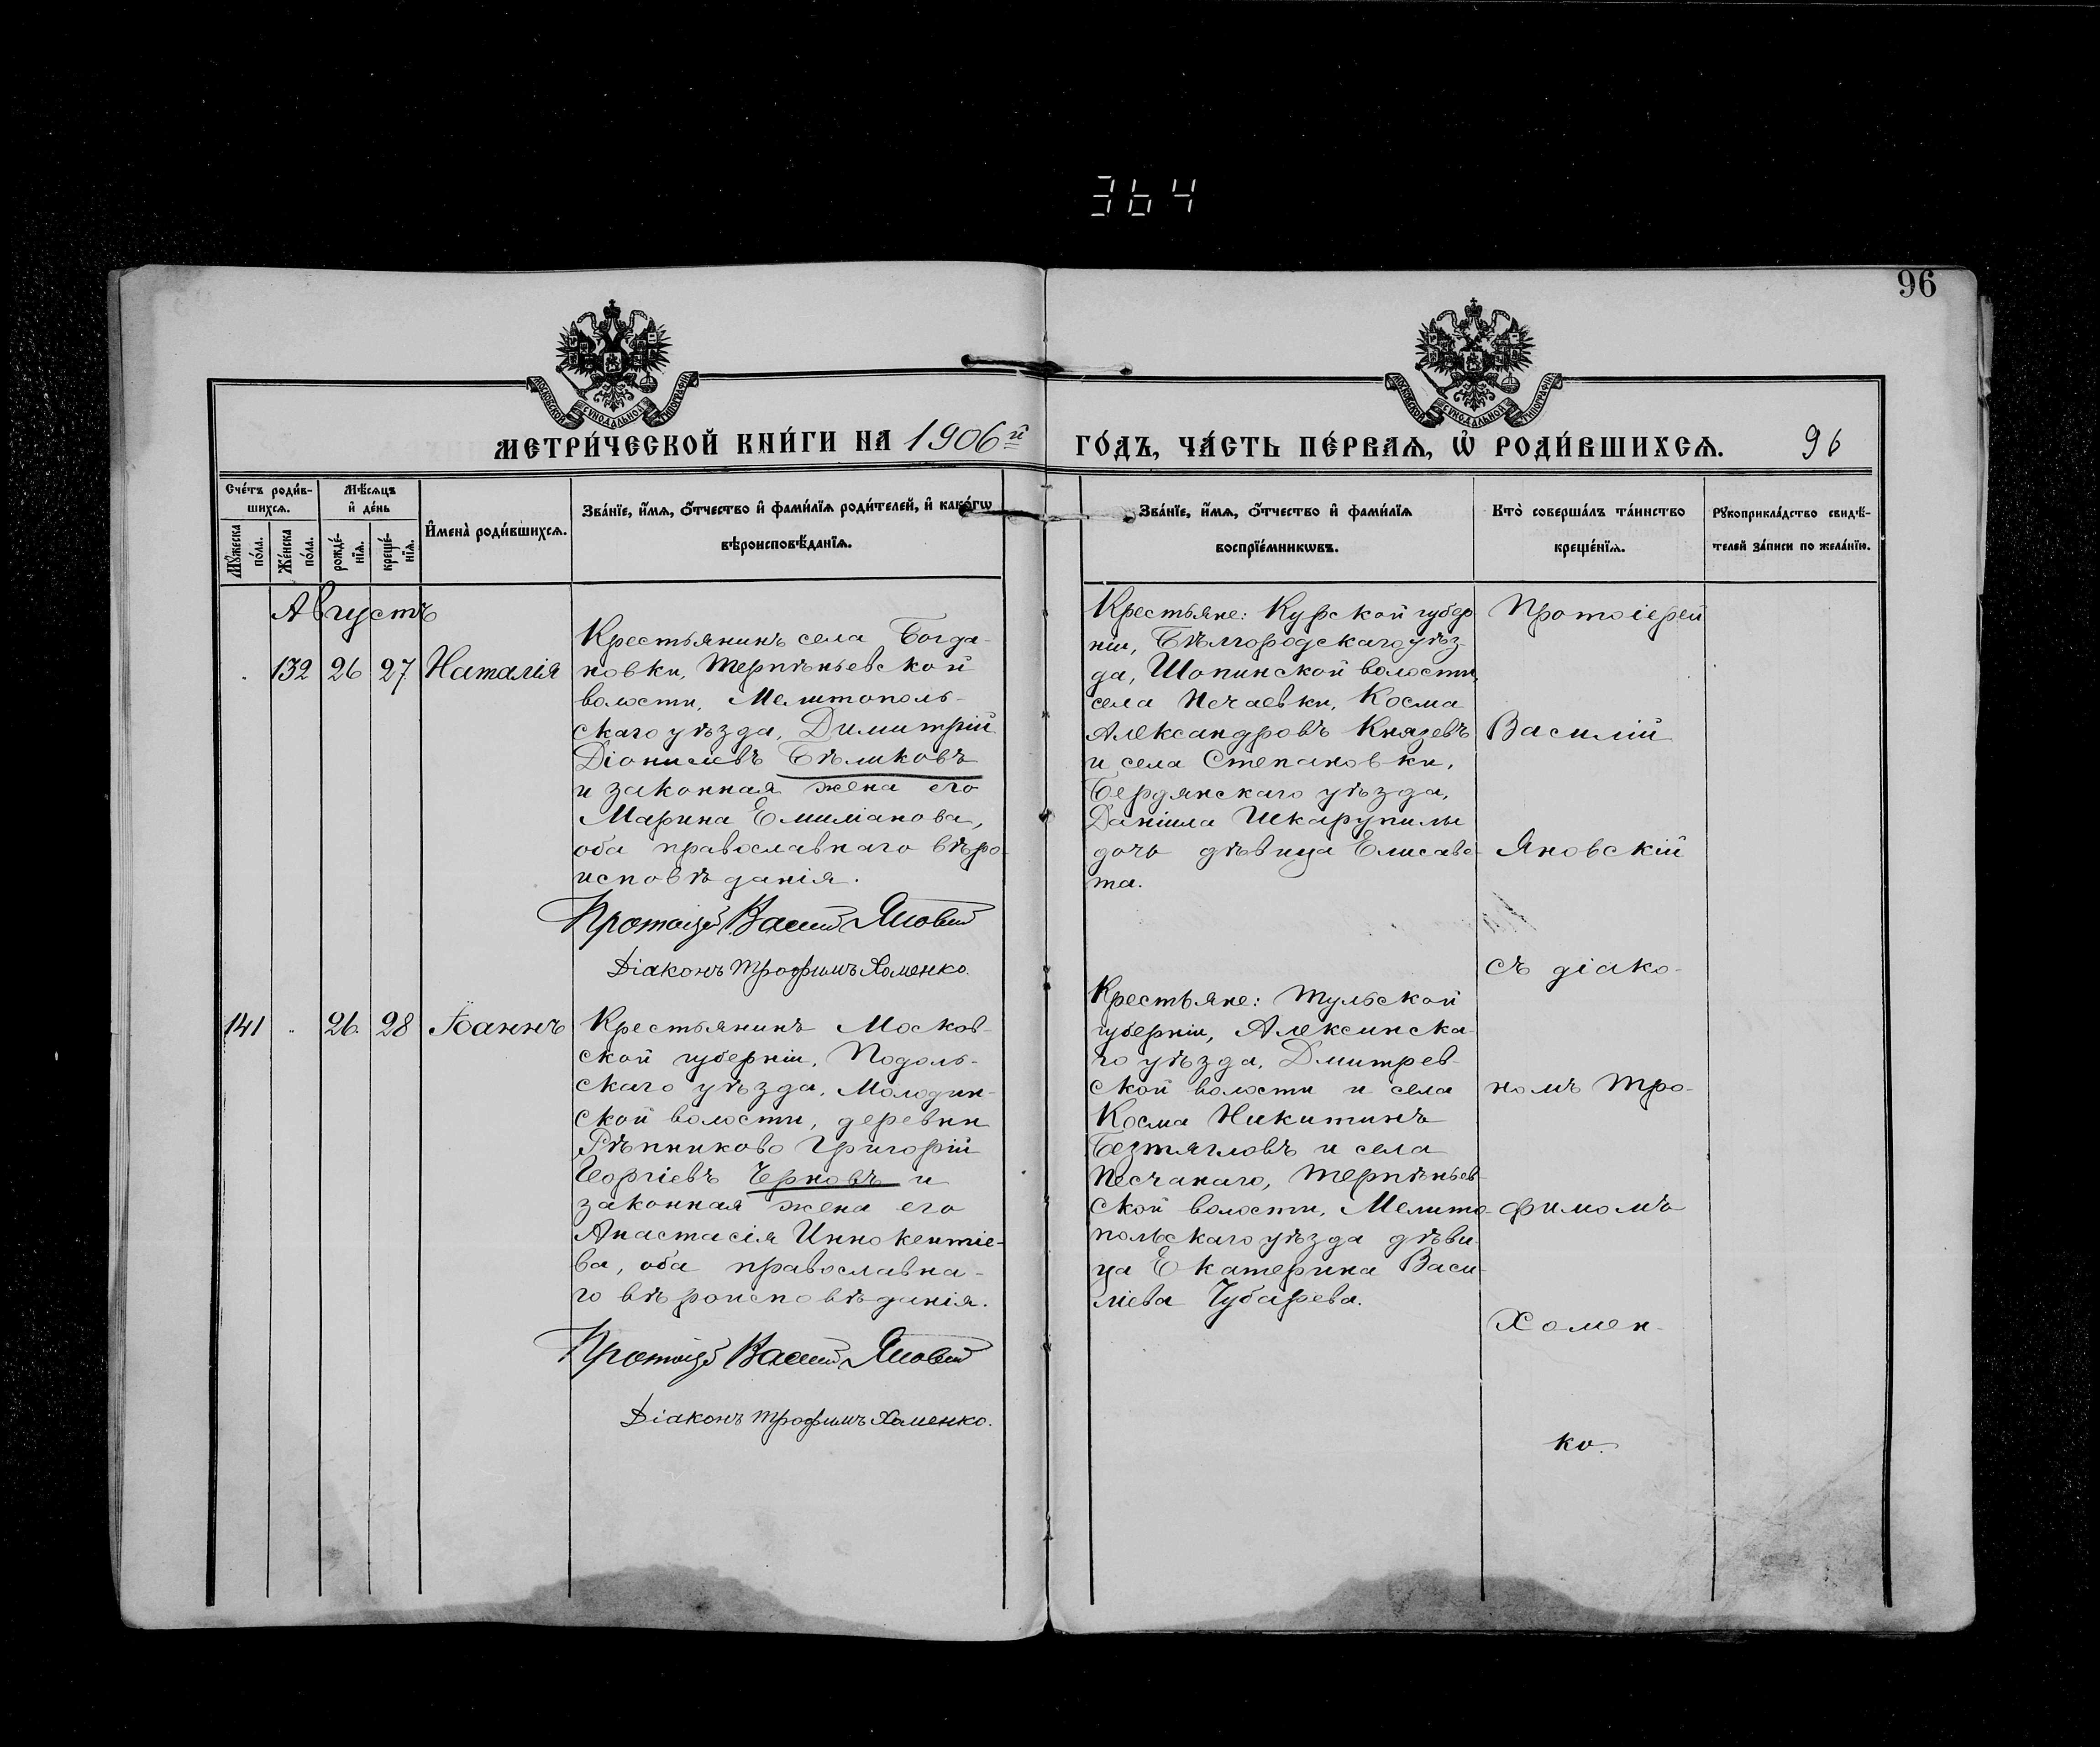 364
96
МОСКОВСКОЙ СѴНОДАЛЬНОЙ ТИПОГРАФІИ
МОСКОВСКОЙ СѴНОДАЛЬНОЙ ТИПОГРАФІИ
МЕТРИ́ЧЕСКОЙ КНИ́ГИ НА 1906й
ГО́ДЪ, ЧА́СТЬ ПЕ́РВАѦ, Ѡ҆ РОДИ́ВШИХСѦ.
96
Сче́тъ роди́в-
шихсѧ.
Мꙋ́жеска
по́ла.
Же́нска
по́ла.
Мѣ́сѧцъ
и҆ де́нь
рожде́-
нїѧ.
креще́-
нїѧ.
И҆мена̀ роди́вшихсѧ.
Зва́нїе, и҆́мѧ, ѻ҆́тчество и҆ фами́лїѧ роди́телей, и҆ како́гѡ
вѣроисповѣ́данїѧ.
Зва́нїе, и҆́мѧ, ѻ҆́тчество и҆ фами́лїѧ
воспрїе́мникѡвъ.
Кто̀ соверша́лъ та́инство
креще́нїѧ.
Рꙋкоприкла́дство свидѣ́-
телей за́писи по жела́нїю.
Августъ
132 26 27 Наталія
Крестьянинъ села Богда-
новки, Терпѣньевской
волости, Мелитополь-
скаго уѣзда, Димитрій
Діонисіевъ Бѣликовъ
и законная жена его
Марина Емиліанова,
оба православнаго вѣро-
исповѣданія.
Протоіерей Василій Яновскій
Діаконъ Трофимъ Хоменко.
Крестьяне: Курской губер
ніи, Бѣлгородскаго уѣз-
да, Шопинской волости,
села Нечаевки, Косма
Александровъ Князевъ
и села Степановки,
Бердянскаго уѣзда,
Даніила Шкарупилы
дочь дѣвица Елисаве-
та.
Протоіерей
Василій
Яновскій
съ діако-
номъ Тро-
фимомъ
Хомен-
ко.
141 . 26. 28 Іоаннъ
Крестьянинъ Москов-
ской губерніи, Подоль-
скаго уѣзда, Молодин-
ской волости, деревни
Рѣпниково Григорій
Георгіевъ Черновъ и
законная жена его
Анастасія Иннокентіе-
ва, оба православна-
го вѣроисповѣданія.
Протоіерей Василій Яновскій
Діаконъ Трофимъ Хоменко.
Крестьяне: Тульской
губерніи, Алексинска-
го уѣзда, Дмитрев-
ской волости и села
Косма Никитинъ
Безтягловъ и села
Песчанаго, Терпѣньев-
ской волости, Мелито-
польскаго уѣзда дѣви-
ца Екатерина Васи-
ліева Чубарева.